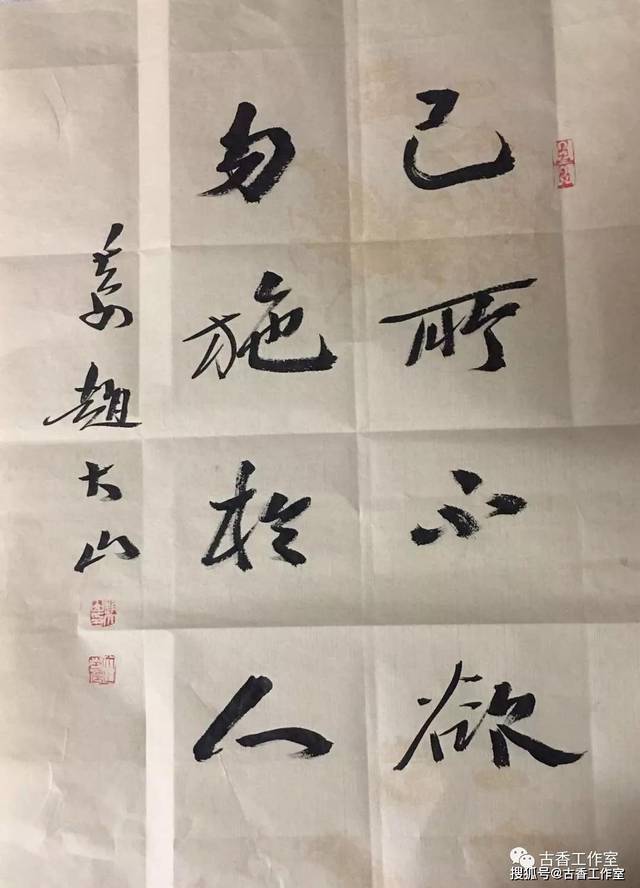 己所不欲
勿施於人
姜趙大山
古香工作室
搜狐号@古香工作室